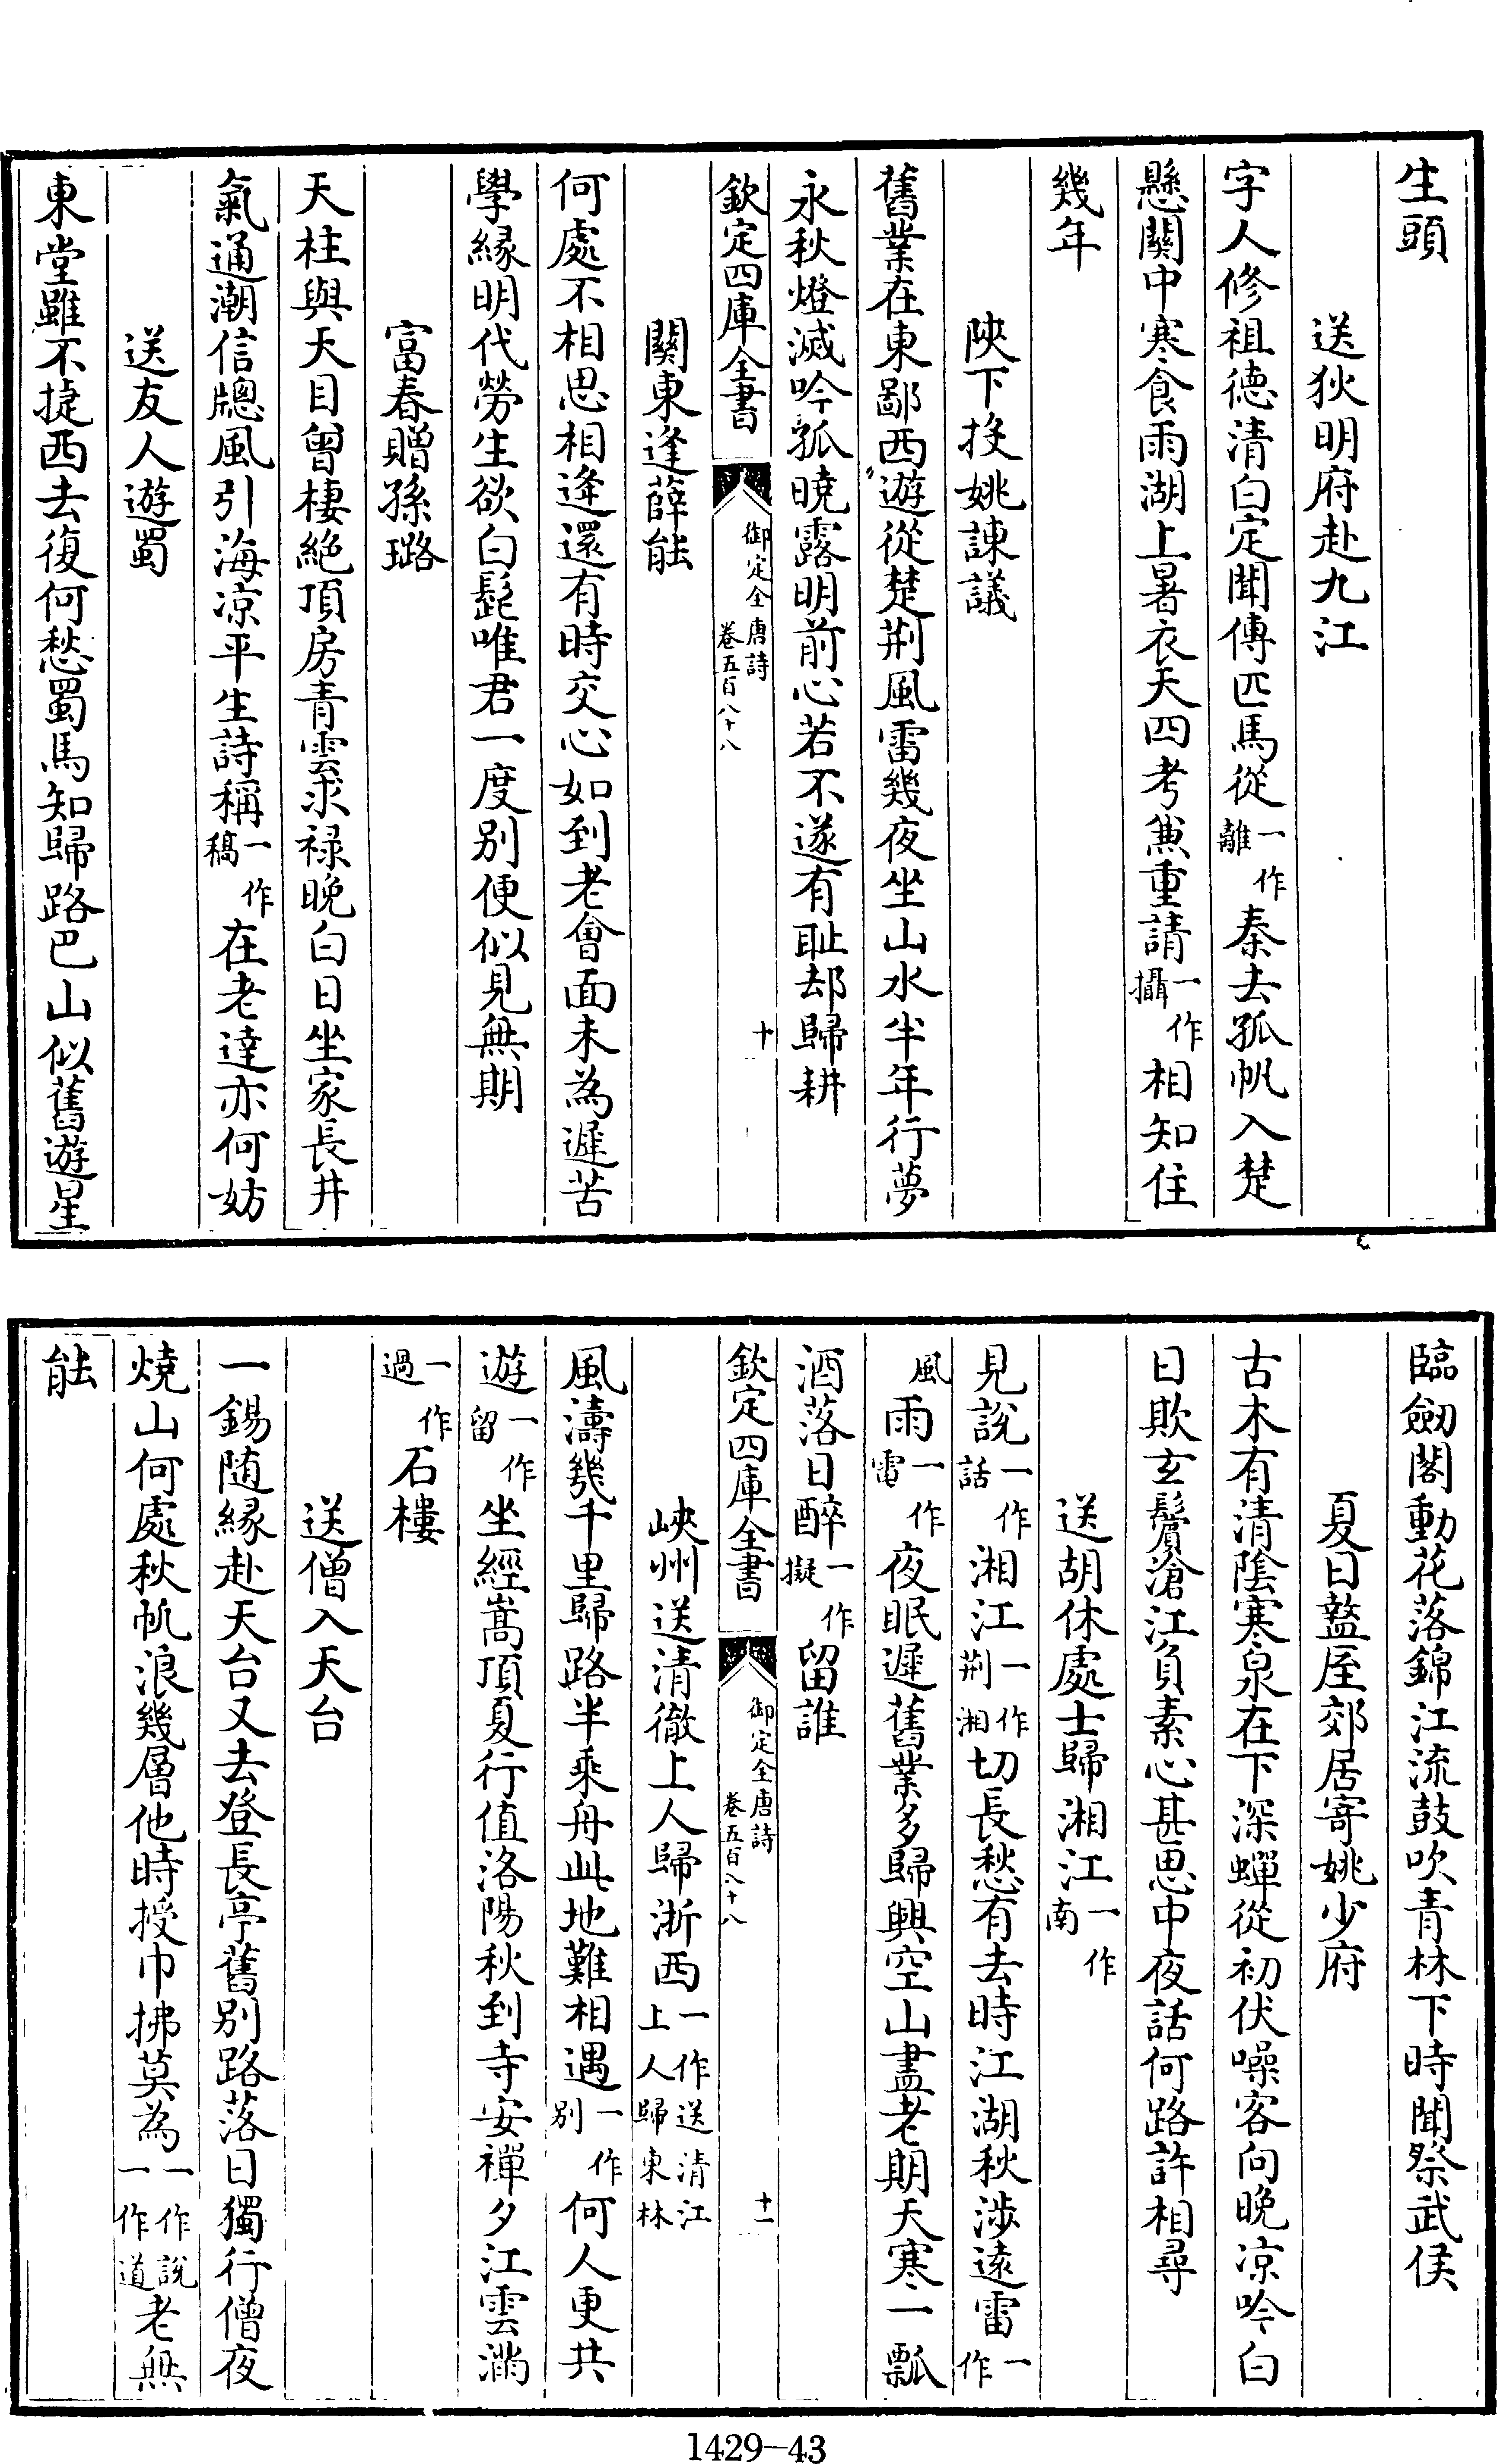 生頭
送狄明府赴九江
字人修祖德清白定聞傳匹馬從一作離秦去孤帆入楚
懸關中寒食雨湖上暑衣天四考兼重請一作攝相知住
幾年
陜下投姚諫議
舊業在東鄙西遊從楚荆風雷幾夜坐山水半年行夢
永秋燈滅吟孤曉露明前心若不遂有耻却歸耕
欽定四庫全書 御定全唐詩 卷五百八十八 十
關東逢薛能
何處不相思相逢還有時交心如到老會面未為遲苦
學緣明代勞生欲白髭唯君一度别便似見無期
富春贈孫璐
天柱與天目曾棲絶頂房青雲求禄晚白日坐家長井
氣通潮信牕風引海凉平生詩稱一作稿在老達亦何妨
送友人遊蜀
東堂雖不捷西去復何愁蜀馬知歸路巴山似舊遊星
臨劒閣動花落錦江流鼓吹青林下時聞祭武侯
夏日盩厔郊居寄姚少府
古木有清陰寒泉在下深蟬從初伏噪客向晚凉吟白
日欺玄鬢滄江負素心甚思中夜話何路許相尋
送胡休處士歸湘江一作南
見說一作話湘江一作荆湘切長愁有去時江湖秋涉遠雷一作
風雨一作電夜眠遲舊業多歸興空山盡老期天寒一瓢
酒落日醉一作擬留誰
欽定四庫全書 御定全唐詩 卷五百八十八 十一
峽州送清徹上人歸浙西一作送清江上人歸東林
風濤幾千里歸路半乘舟此地難相遇一作别何人更共
遊一作留坐經嵩頂夏行值洛陽秋到寺安禪夕江雲滿
一作過石樓
送僧入天台
一錫隨緣赴天台又去登長亭舊别路落日獨行僧夜
燒山何處秋帆浪幾層他時授巾拂莫為一作說一作道老無
能
1429-43